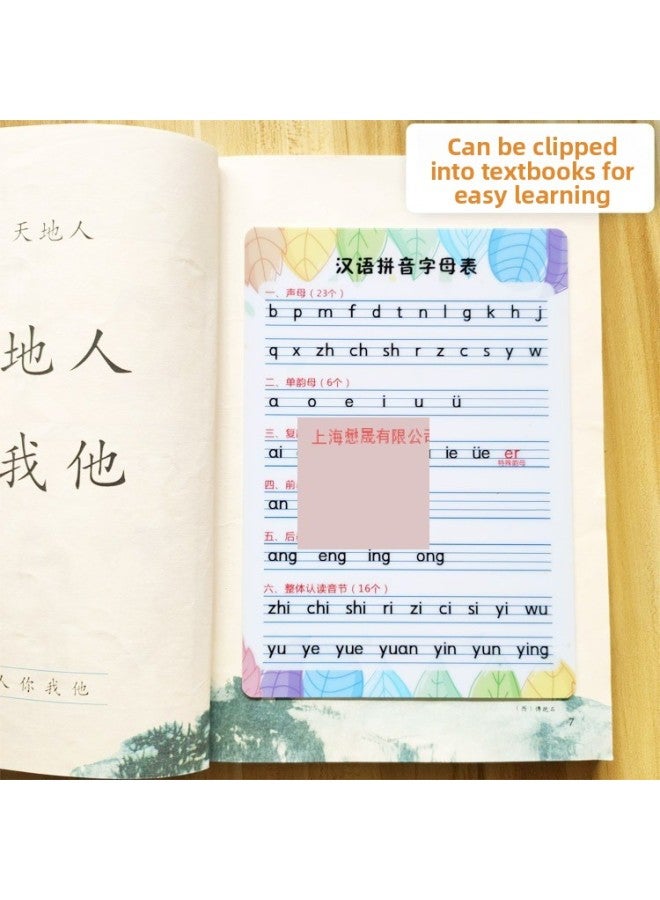 Can be clipped
into textbooks for
easy learning
天地人
地人
我他
人你我他
汉语拼音字母表
一、声母（23个）
b p m f d t n l g k h j
q x zh ch sh r z c s y w
二、单韵母（6个）
ɑ o e i u ü
三、复
上海懋晟有限公司
ɑi ie üe er
特殊韵母
四、前
ɑn
五、后
ɑng eng ing ong
六、整体认读音节（16个）
zhi chi shi ri zi ci si yi wu
yu ye yue yuan yin yun ying
7